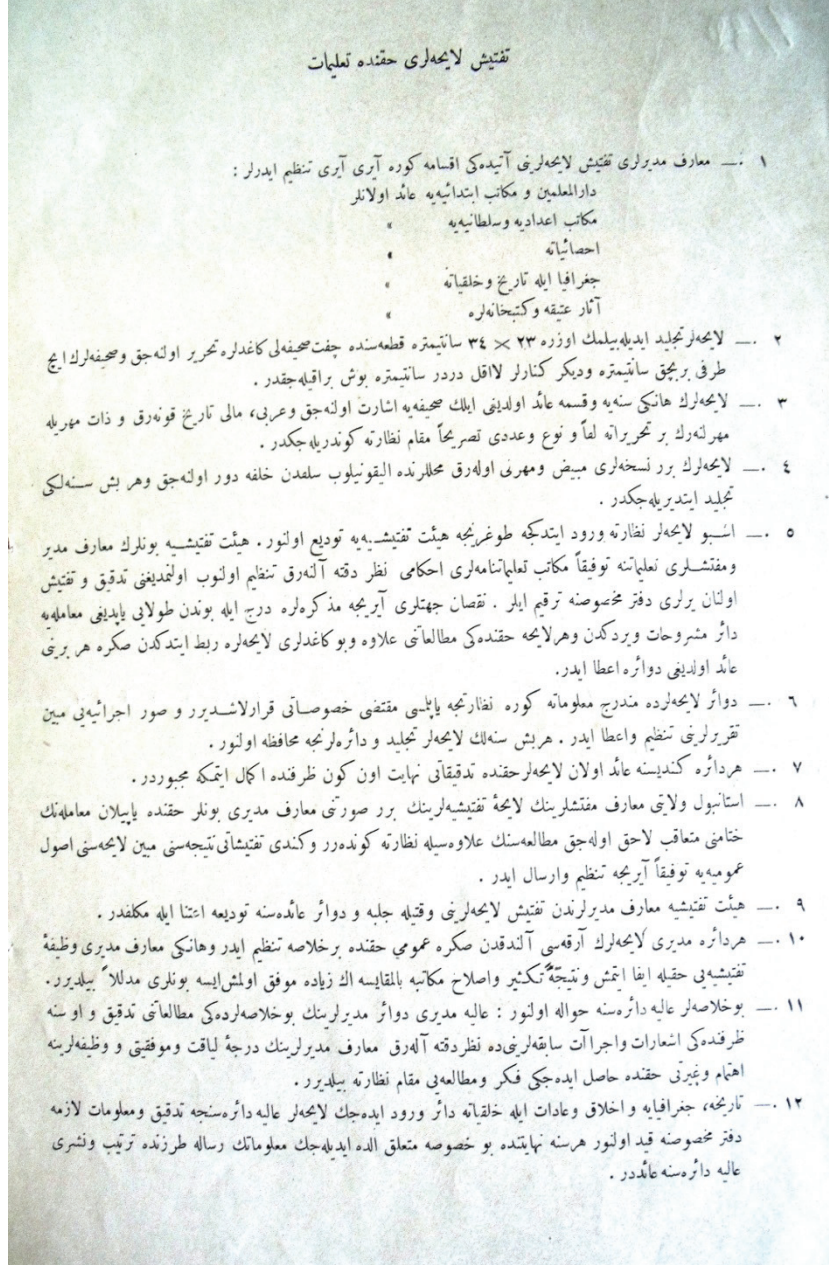 تفتيش لايحه‌لرى حقنده تعليمات
١ — معارف مديرلرى تفتيش لايحه‌لرينى آتيده‌كى اقسامه كوره آيرى آيرى تنظيم ايدرلر :
دارالمعلمين و مكاتب ابتدائيه‌يه عائد اولانلر
مكاتب اعداديه وسلطانيه‌يه »
احصائياته »
جغرافيا ايله تاريخ وخلقياته »
آثار عتيقه وكتبخانه‌لره »
٢ — لايحه‌لر تجليد ايديله‌بيلمك اوزره ٢٣ × ٣٤ سانتيمتره قطعه‌سنده چفت صحيفه‌لى كاغدلره تحرير اولنه‌جق وصحيفه‌لرك ايچ
طرفى بر بچق سانتيمتره وديكر كنارلر لااقل دردر سانتيمتره بوش براقيله‌جقدر .
٣ — لايحه‌لرك هانكى سنه‌يه وقسمه عائد اولديغى ايلك صحيفه‌يه اشارت اولنه‌جق وعربى، مالى تاريخ قونه‌رق و ذات مهريله
مهرلنه‌رك بر تحريراته لفاً و نوع وعددى تصريحاً مقام نظارته كوندريله‌جكدر .
٤ — لايحه‌لرك برر نسخه‌لرى مبيض ومهرلى اوله‌رق محللرنده اليقونيلوب سلفدن خلفه دور اولنه‌جق وهر بش سنه‌لكى
تجليد ايتديريله‌جكدر .
٥ — اشبو لايحه‌لر نظارته ورود ايتدكجه طوغريجه هيئت تفتيشيه‌يه توديع اولنور . هيئت تفتيشيه بونلرك معارف مدير
ومفتشلرى تعليماتنه توفيقاً مكاتب تعليماتنامه‌لرى احكامى نظر دقته آلنه‌رق تنظيم اولنوب اولنمديغنى تدقيق و تفتيش
اولنان يرلرى دفتر مخصوصنه ترقيم ايلر . نقصان جهتلرى آيريجه مذكره‌لره درج ايله بوندن طولايى ياپديغى معامله‌يه
دائر مشروحات ويردكدن وهر لايحه حقنده‌كى مطالعاتنى علاوه وبو كاغدلرى لايحه‌لره ربط ايتدكدن صكره هر برينى
عائد اولديغى دوائره اعطا ايدر.
٦ — دوائر لايحه‌لرده مندرج معلوماته كوره نظارتجه ياپلمسى مقتضى خصوصاتى قرارلاشديرر و صور اجرائيه‌يى مبين
تقريرلرينى تنظيم واعطا ايدر . هربش سنه‌لك لايحه‌لر تجليد و دائره‌لرنجه محافظه اولنور .
٧ — هردائره كنديسنه عائد اولان لايحه‌لر حقنده تدقيقاتى نهايت اون كون ظرفنده اكمال ايتمكه مجبوردر .
٨ — استانبول ولايتى معارف مفتشلرينك لايحۀ تفتيشيه‌لرينك برر صورتنى معارف مديرى بونلر حقنده ياپيلان معامله‌نك
ختامنى متعاقب لاحق اوله‌جق مطالعه‌سنك علاوه‌سيله نظارته كونده‌رر وكندى تفتيشاتى نتيجه‌سنى مبين لايحه‌سنى اصول
عموميه‌يه توفيقاً آيريجه تنظيم وارسال ايدر .
٩ — هيئت تفتيشيه معارف مديرلرندن تفتيش لايحه‌لرينى وقتيله جلبه و دوائر عائده‌سنه توديعه اعتنا ايله مكلفدر .
١٠ — هردائره مديرى لايحه‌لرك آرقه‌سى آلندقدن صكره عمومى حقنده برخلاصه تنظيم ايدر وهانكى معارف مديرى وظيفۀ
تفتيشيه‌يى حقيله ايفا ايتمش ونتيجۀ تكثير واصلاح مكاتبه بالمقايسه اك زياده موفق اولمش ايسه بونلرى مدللاً بيلديرر.
١١ — بوخلاصه‌لر عاليه دائره‌سنه حواله اولنور : عاليه مديرى دوائر مديرلرينك بوخلاصه‌لرده‌كى مطالعاتنى تدقيق و او سنه
ظرفنده‌كى اشعارات واجراآت سابقه‌لرينى‌ده نظر دقته آله‌رق معارف مديرلرينك درجۀ لياقت وموفقيتى و وظيفه‌لرينه
اهتمام وغيرتى حقنده حاصل ايده‌جكى فكر ومطالعه‌يى مقام نظارته بيلديرر .
١٢ — تاريخه، جغرافيايه و اخلاق وعادات ايله خلقياته دائر ورود ايده‌جك لايحه‌لر عاليه دائره‌سنجه تدقيق ومعلومات لازمه
دفتر مخصوصنه قيد اولنور هرسنه نهايتنده بو خصوصه متعلق الده ايديله‌جك معلوماتك رساله طرزنده ترتيب ونشرى
عاليه دائره‌سنه عائددر .